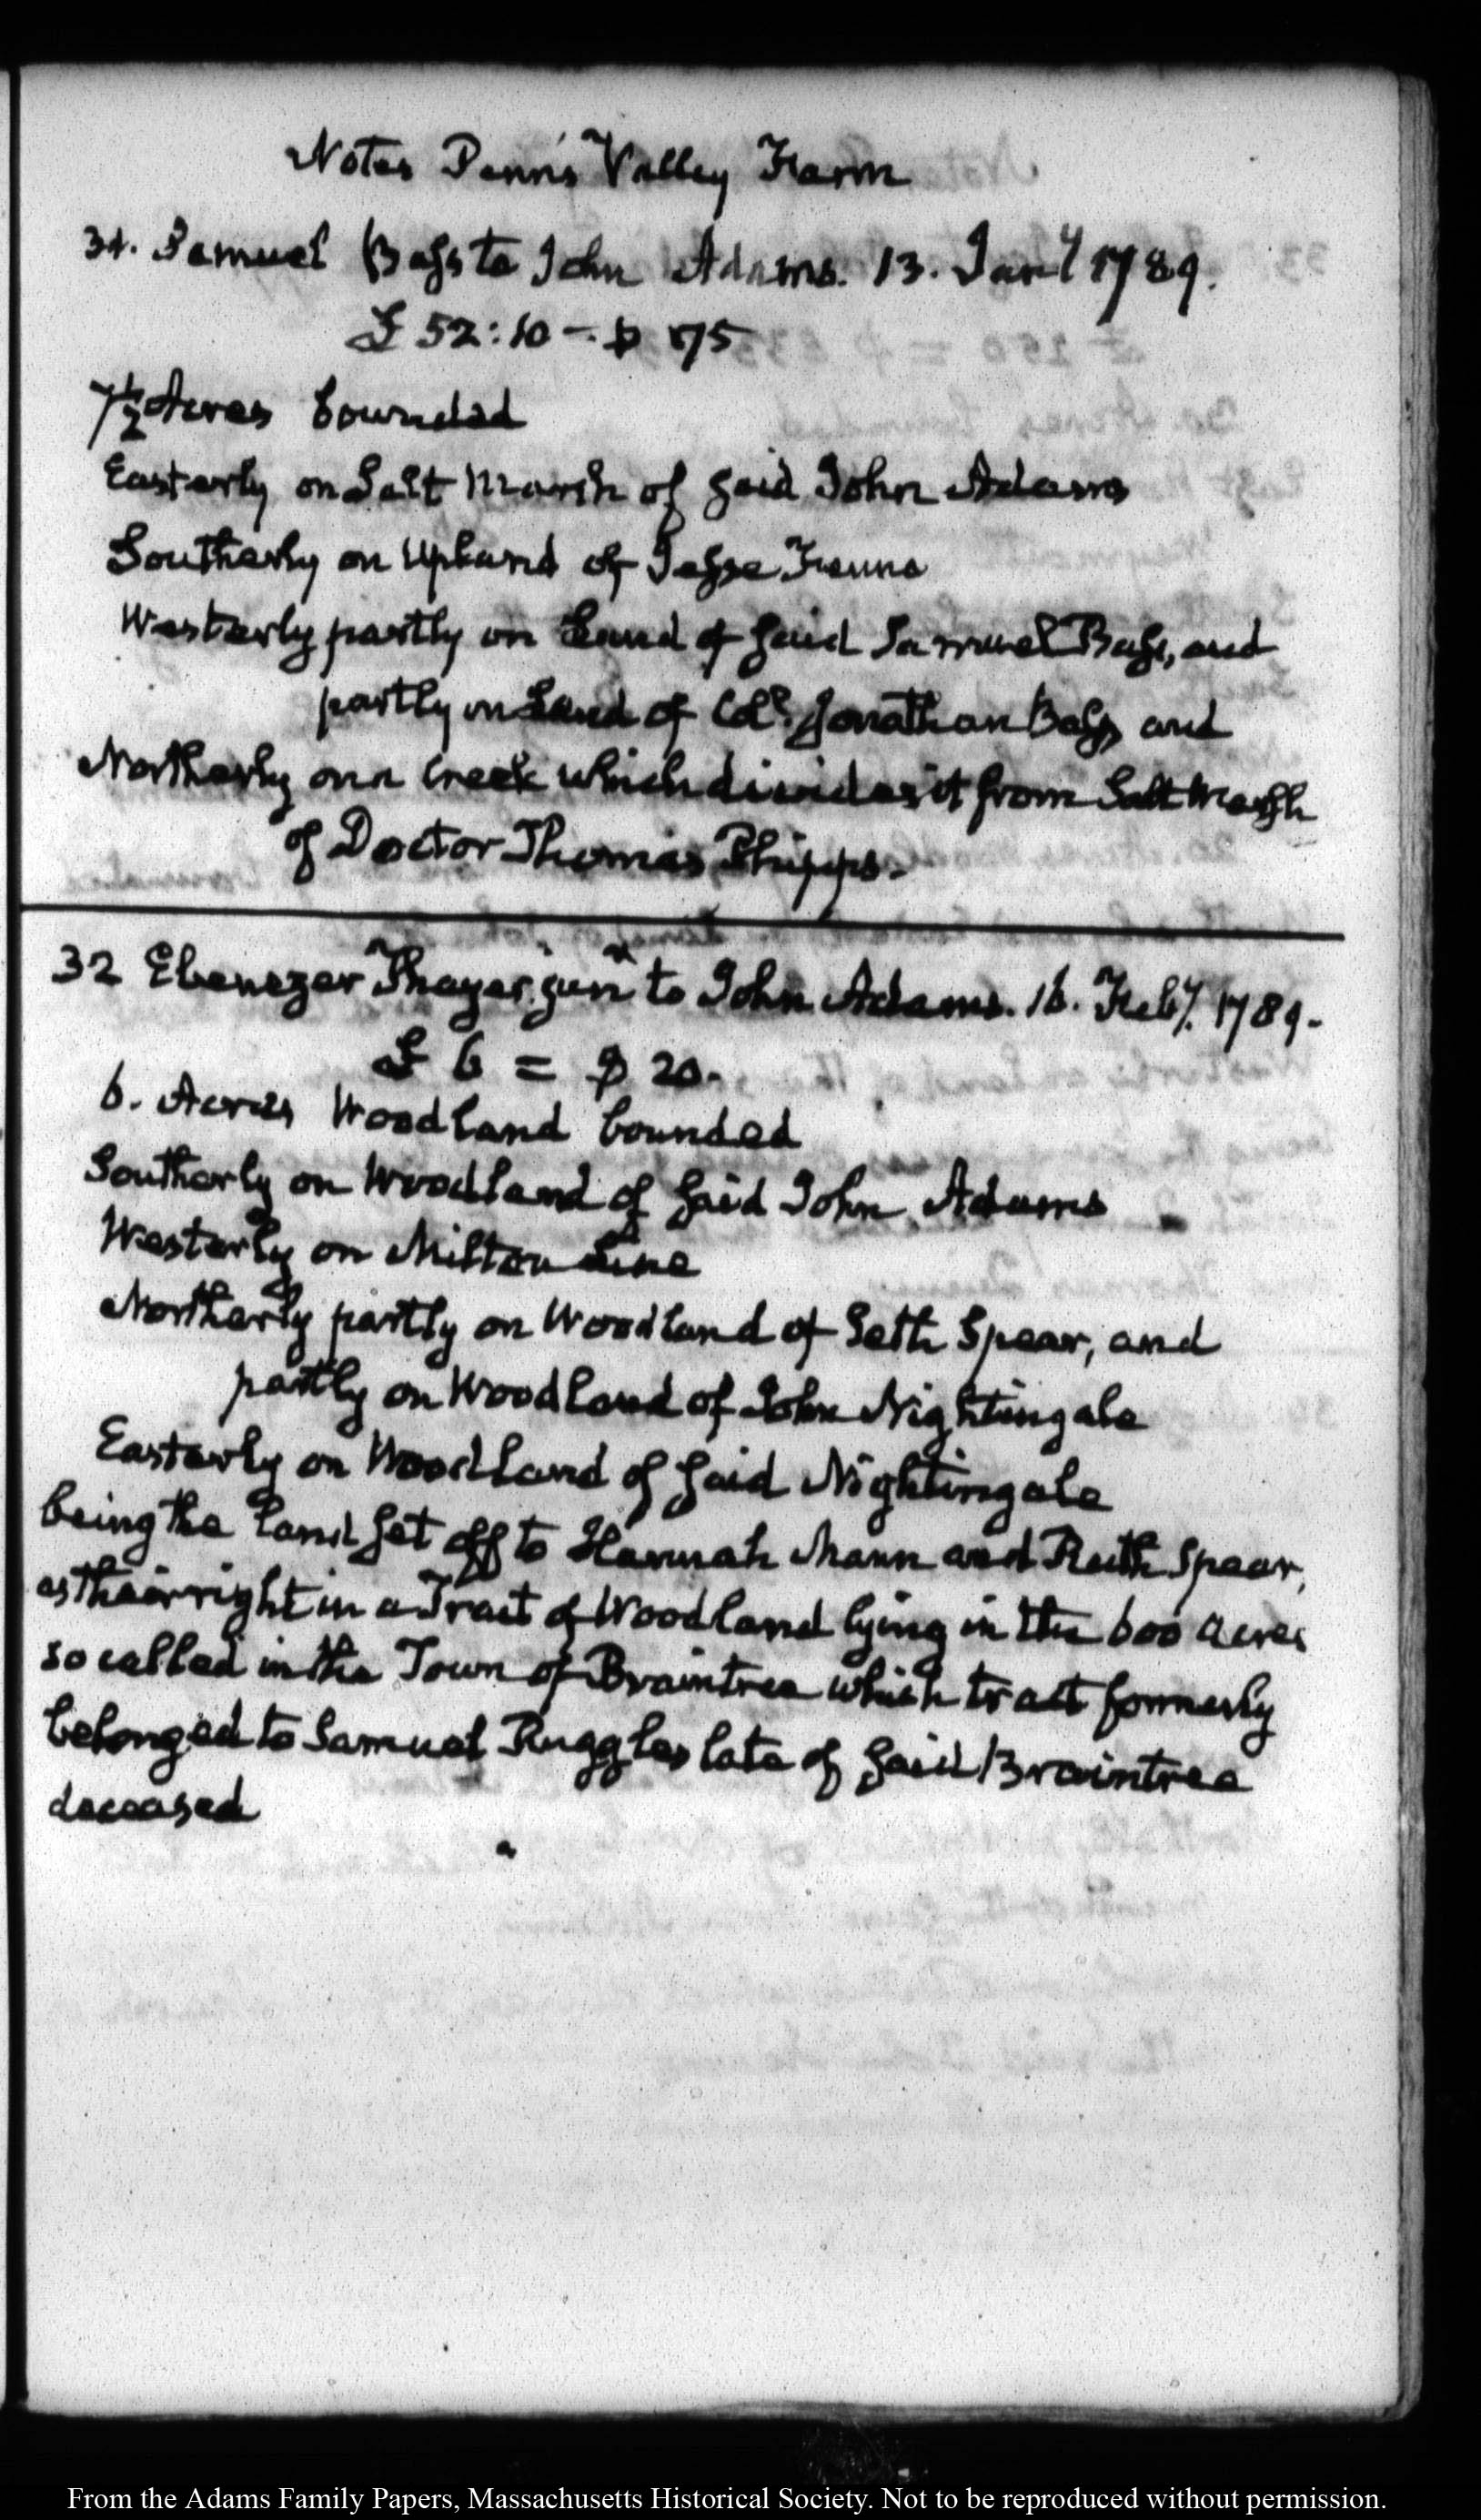 Notes Penn's Valley Farm
31. Samuel Bass to John Adams. 13. Jany 1789.
£ 52:10 = $ 175
7 1/2 Acres bounded
Easterly on Salt Marsh of said John Adams
Southerly on Upland of Jesse Fenno
Westerly partly on Land of said Samuel Bass, and
partly on Land of Coll. Jonathan Bass and
Northerly on a Creek which divides it from Salt Marsh
of Doctor Thomas Phipps.
32 Ebenezer Thayer junr to John Adams. 16. Feby. 1789.
£ 6 = $ 20.
6. Acres Woodland bounded
Southerly on Woodland of said John Adams
Westerly on Milton Line
Northerly partly on Woodland of Seth Spear, and
partly on Woodland of John Nightingale
Easterly on Woodland of said Nightingale
being the Land set off to Hannah Mann and Ruth Spear,
as their right in a Tract of Woodland lying in the 600 acres
so called in the Town of Braintree which tract formerly
belonged to Samuel Ruggles late of said Braintree
deceased
From the Adams Family Papers, Massachusetts Historical Society. Not to be reproduced without permission.